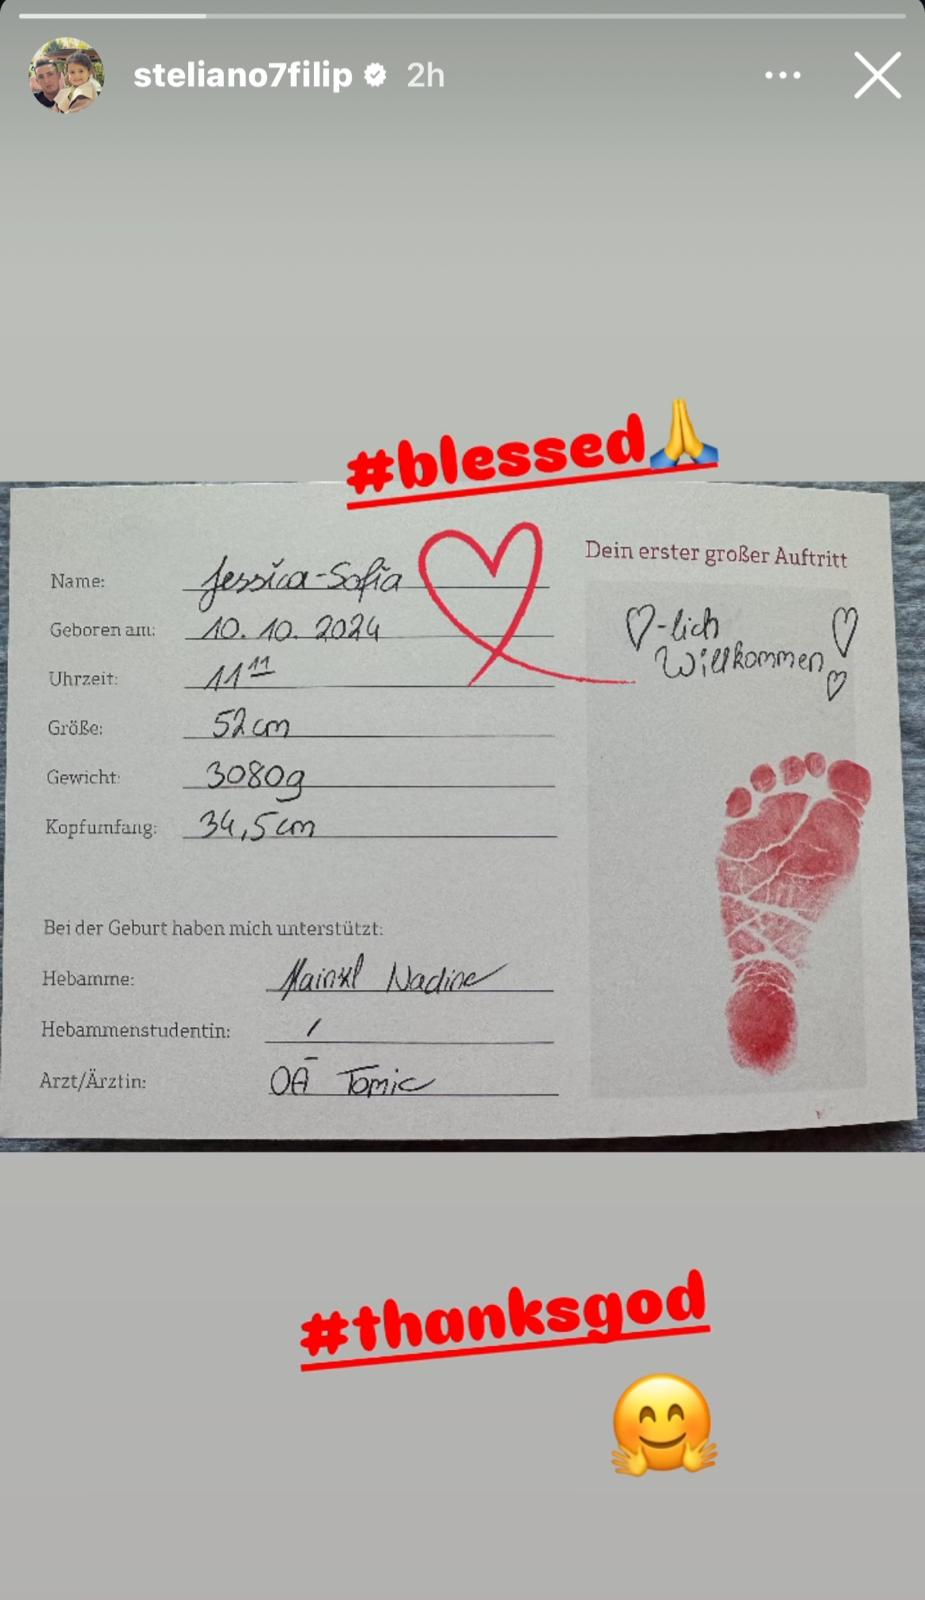 steliano7filip 2h
#blessed🙏
Dein erster großer Auftritt
Name: Jessica-Sofia
Geboren am: 10.10.2024
Uhrzeit: 11 11
Größe: 52cm
Gewicht: 3080g
Kopfumfang: 34,5cm
♡-lich
Willkommen
Bei der Geburt haben mich unterstützt:
Hebamme: Nadine
Hebammenstudentin: /
Arzt/Ärztin: OA Tomic
#thanksgod
🤗